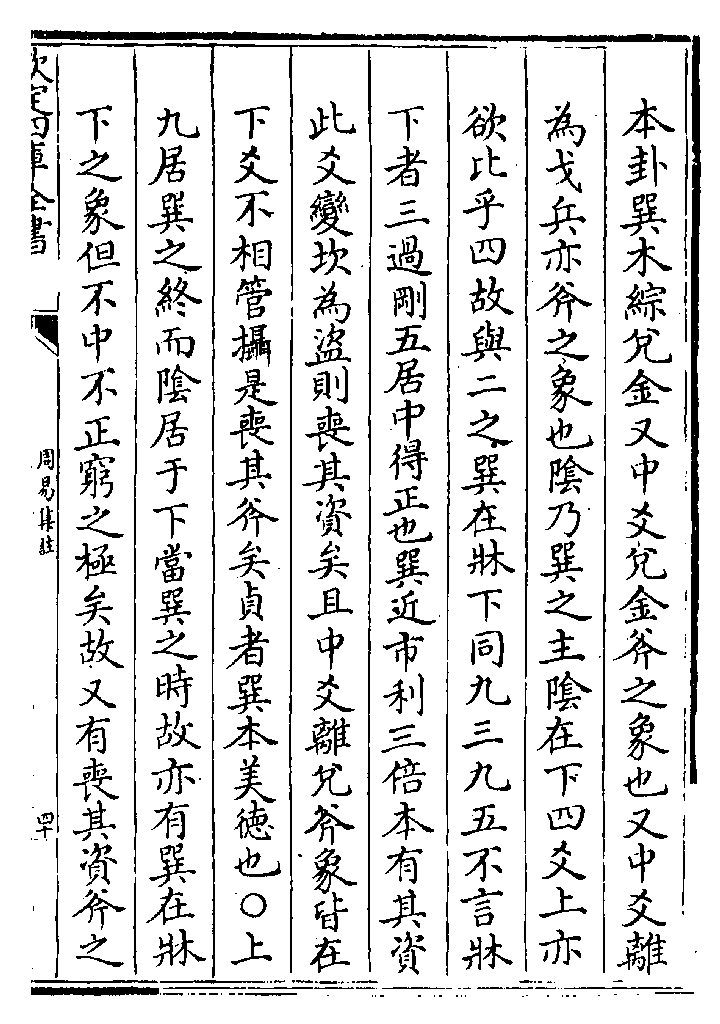 本卦巽木綜兌金又中爻兌金斧之象也又中爻離
為戈兵亦斧之象也陰乃巽之主陰在下四爻上亦
欲比乎四故與二之巽在牀下同九三九五不言牀
下者三過剛五居中得正也巽近市利三倍本有其資
此爻變坎為盜則喪其資矣且中爻離兌斧象皆在
下爻不相管攝是喪其斧矣貞者巽本美德也○上
九居巽之終而陰居于下當巽之時故亦有巽在牀
下之象但不中不正窮之極矣故又有喪其資斧之
欽定四庫全書
周易集註
四十